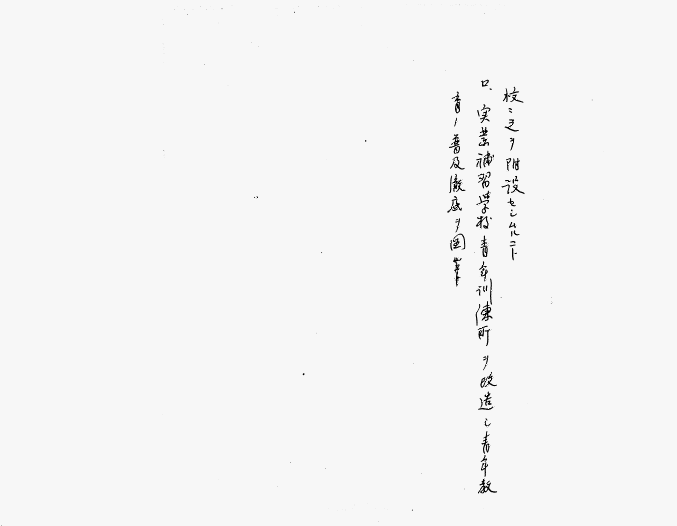 校ニ之ヲ附設セシムルコト
ロ、実業補習学校青年訓練所ヲ改造シ青年教
育ノ普及徹底ヲ図